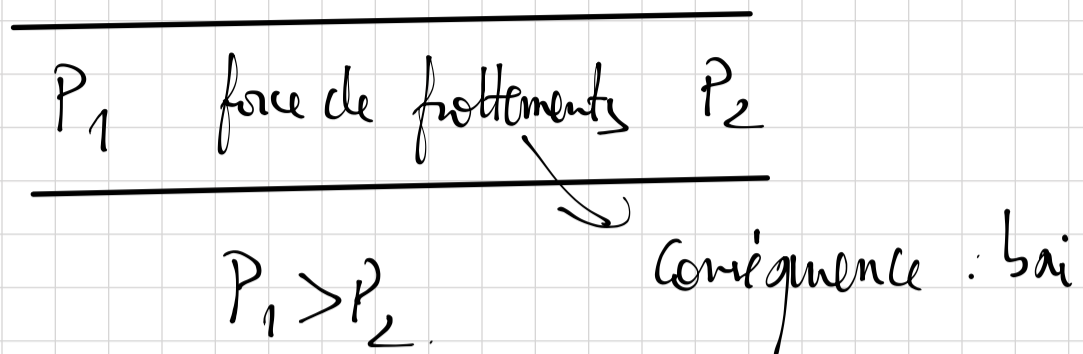 P₁ force de frottements P₂
P₁ > P₂.
Conséquence : bai